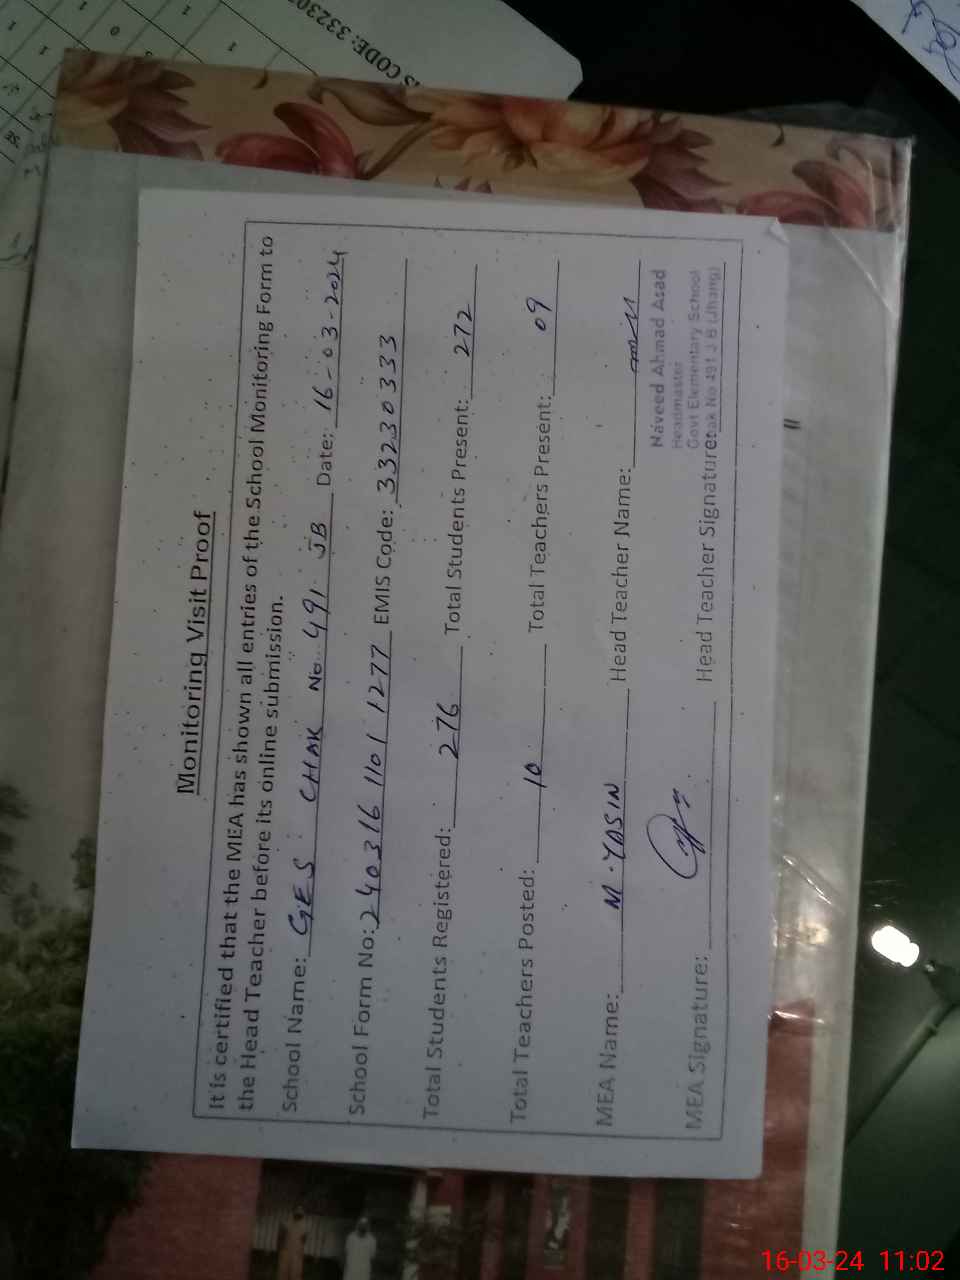 Monitoring Visit Proof
It is certified that the MEA has shown all entries of the School Monitoring Form to
the Head Teacher before its online submission.
School Name: GES CHAK No. 491 JB Date: 16-03-2024
School Form No: 24031611011277 EMIS Code: 33230333
Total Students Registered: 276 Total Students Present: 272
Total Teachers Posted: 10 Total Teachers Present: 09
MEA Name: M. YASIN Head Teacher Name:
MEA Signature: Head Teacher Signature:
Naveed Ahmad Asad
Headmaster
Govt Elementary School
No 491 J B (Jhang)
16-03-24 11:02